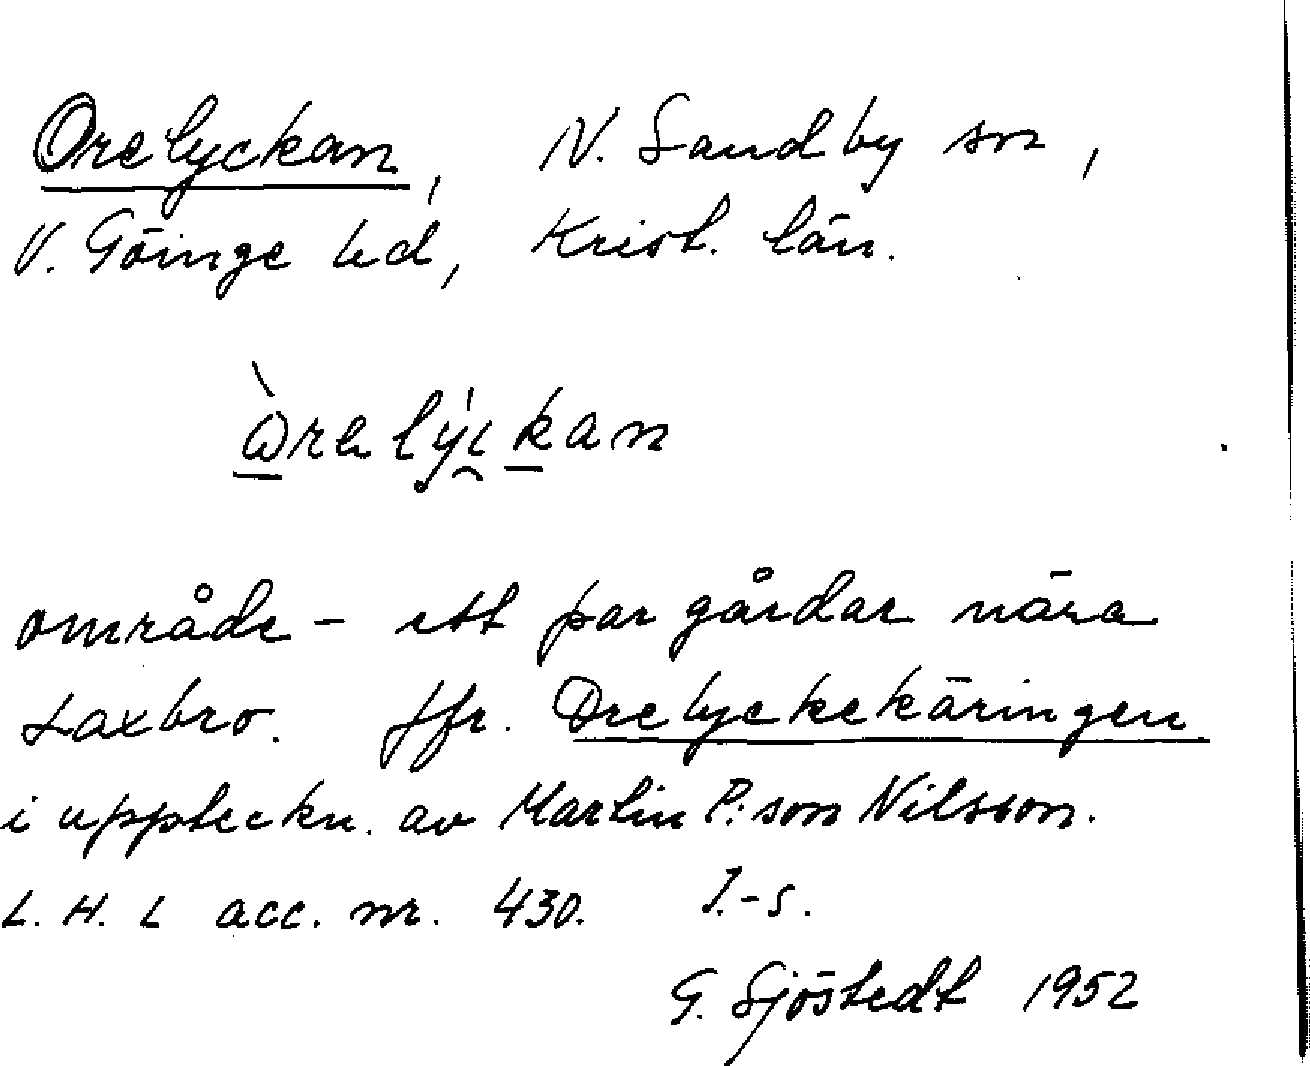 Orelyckan, N. Sandby sn,
V. Göinge hd, Krist. län.
område - ett par gårdar nära
Laxbro. Jfr. Orelyckekäringen
i uppteckn. av Martin P:son Nilsson.
L. H. L acc. nr. 430. I.-s.
G. Sjöstedt 1952